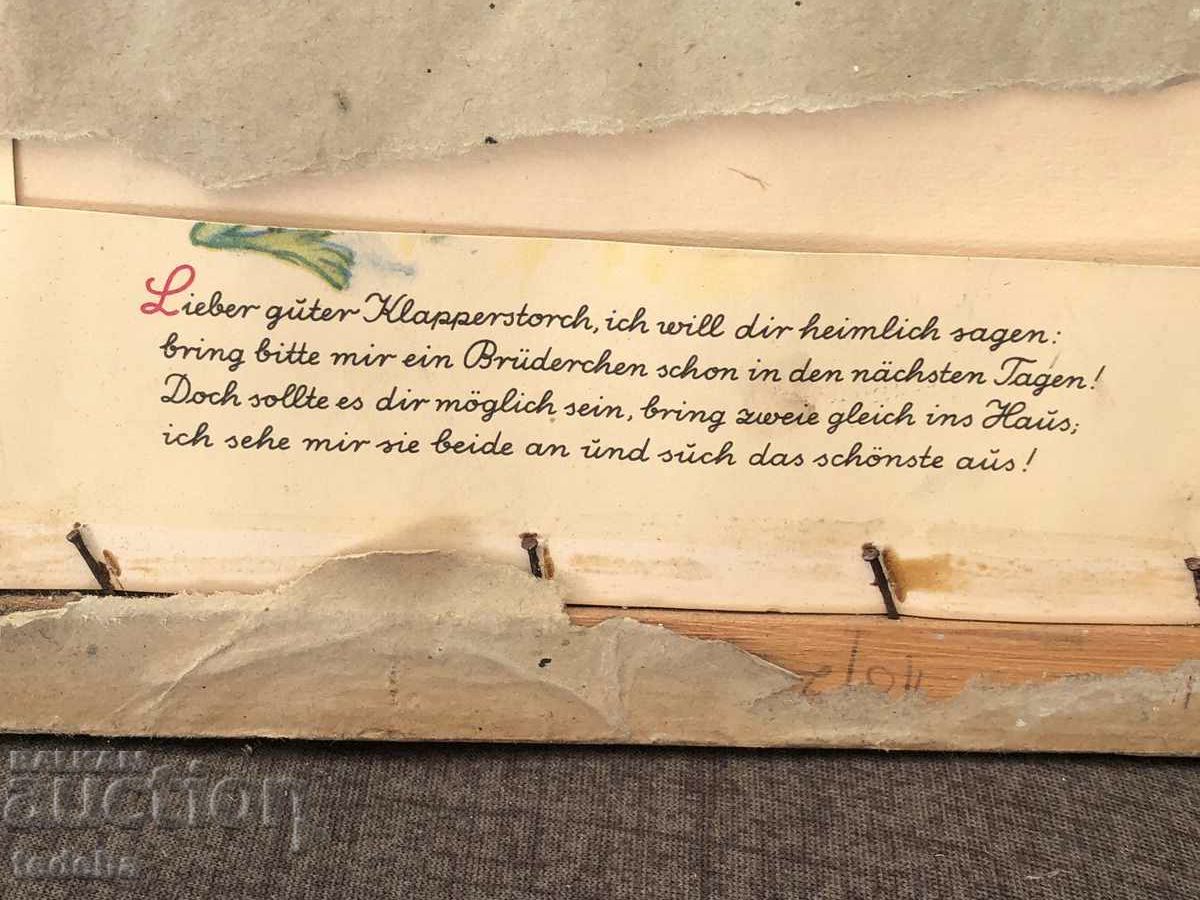 Lieber gŭter Klapperstorch, ich will dir heimlich sagen:
bring bitte mir ein Brüderchen schon in den nächsten Tagen!
Doch sollte es dir möglich sein, bring zweie gleich ins Haŭs;
ich sehe mir sie beide an ŭnd sŭch das schönste aŭs!
BALKAN
auction
tedeha